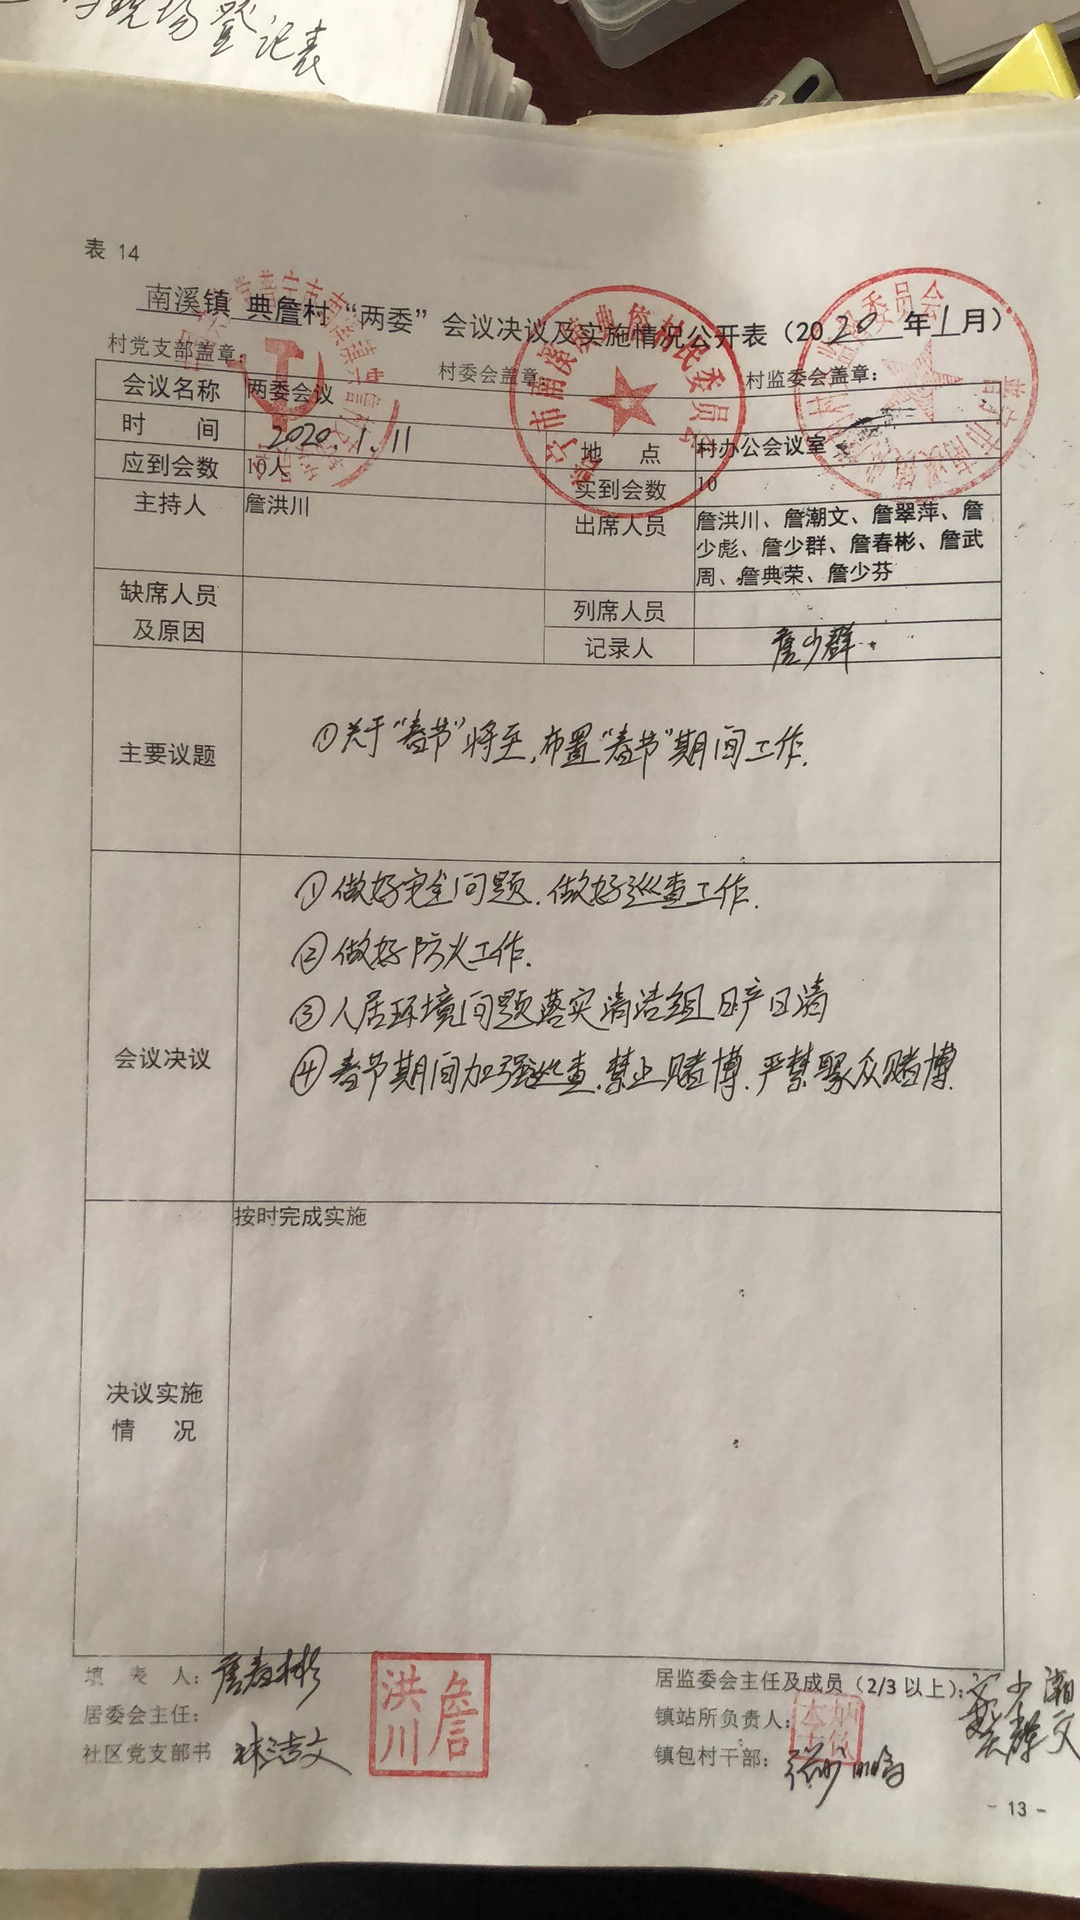 现场登记表
表 14
南溪镇 典詹村“两委”会议决议及实施情况公开表（2020年1月）
村党支部盖章： 村委会盖章 村监委会盖章：
会议名称 两委会议
时 间 2020.1.11 地 点 村办公会议室
应到会数 10人 实到会数 10
主持人 詹洪川 出席人员 詹洪川、詹潮文、詹翠萍、詹
少彪、詹少群、詹春彬、詹武
周、詹典荣、詹少芬
缺席人员
及原因
列席人员
记录人 詹少群.
主要议题 ①关于“春节”将至,布置“春节”期间工作.
会议决议
①做好安全问题.做好巡查工作.
②做好防火工作.
③人居环境问题落实清洁组日产日清
④春节期间加强巡查.禁止赌博.严禁聚众赌博.
按时完成实施
决议实施
情 况
填 表 人：詹春彬
居委会主任：
社区党支部书 林洁文
洪川詹
居监委会主任及成员（2/3以上）：
镇站所负责人：
镇包村干部：
- 13 -